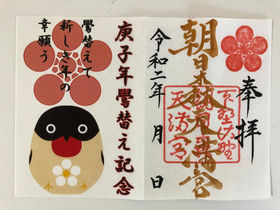 奉拝
朝日森天満宮
下野佐野
天満宮
令和二年 月 日
庚子年鷽替え記念
鷽替えて
新しき年の
幸願う